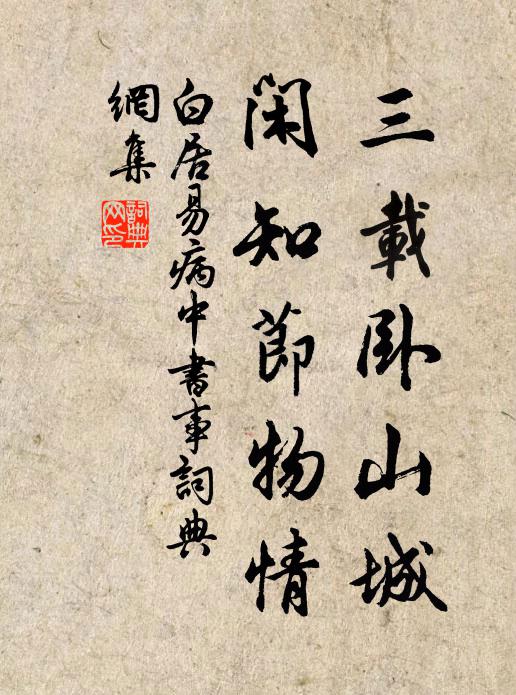 三載卧山城
閑知節物情
白居易病中書事詞典
網集
詞典
网印